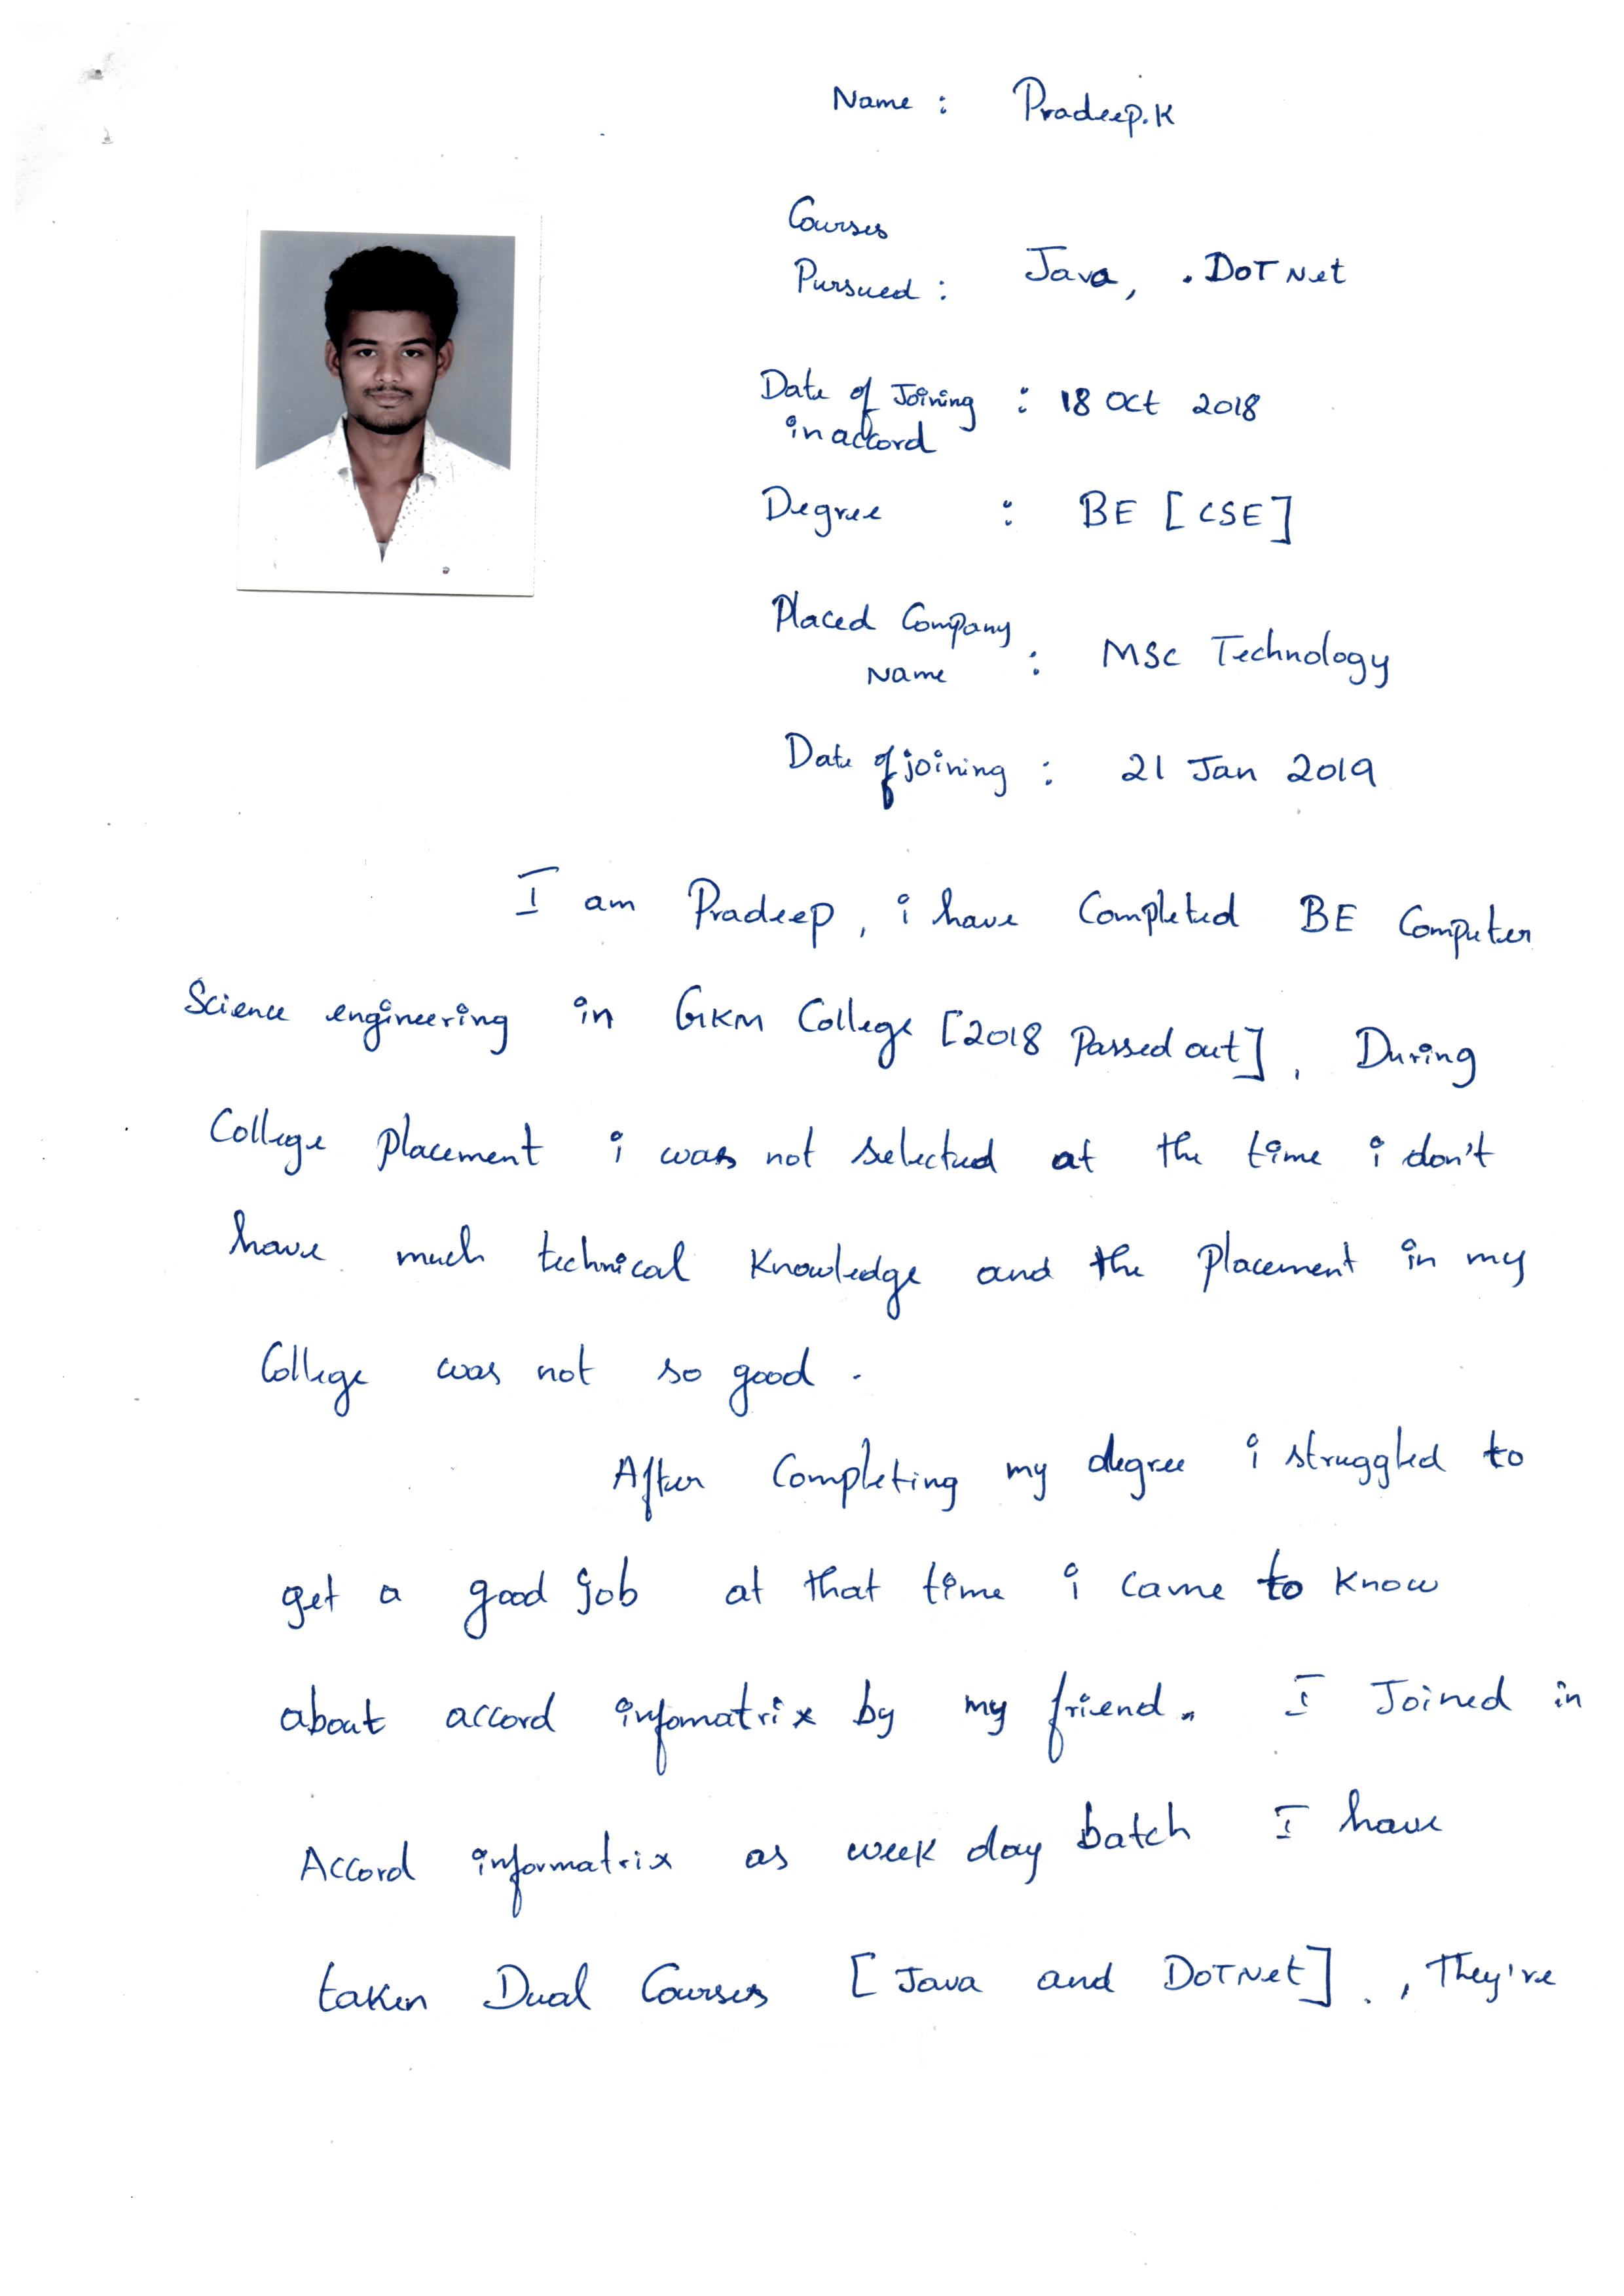 Name : Pradeep.K
Courses
Pursued : Java, .DOT Net
Date of Joining : 18 Oct 2018
in accord
Degree : BE [CSE]
Placed Company
Name : MSC Technology
Date of joining : 21 Jan 2019
I am Pradeep, i have Completed BE Computer
Science engineering in GKM College [2018 Passed out]. During
College placement i was not selected at the time i don't
have much technical knowledge and the placement in my
College was not so good.
After Completing my degree i struggled to
get a good job at that time i came to know
about accord infomatrix by my friend. I Joined in
Accord informatrix as week day batch I have
taken Dual Courses [Java and DOTNet]., They've